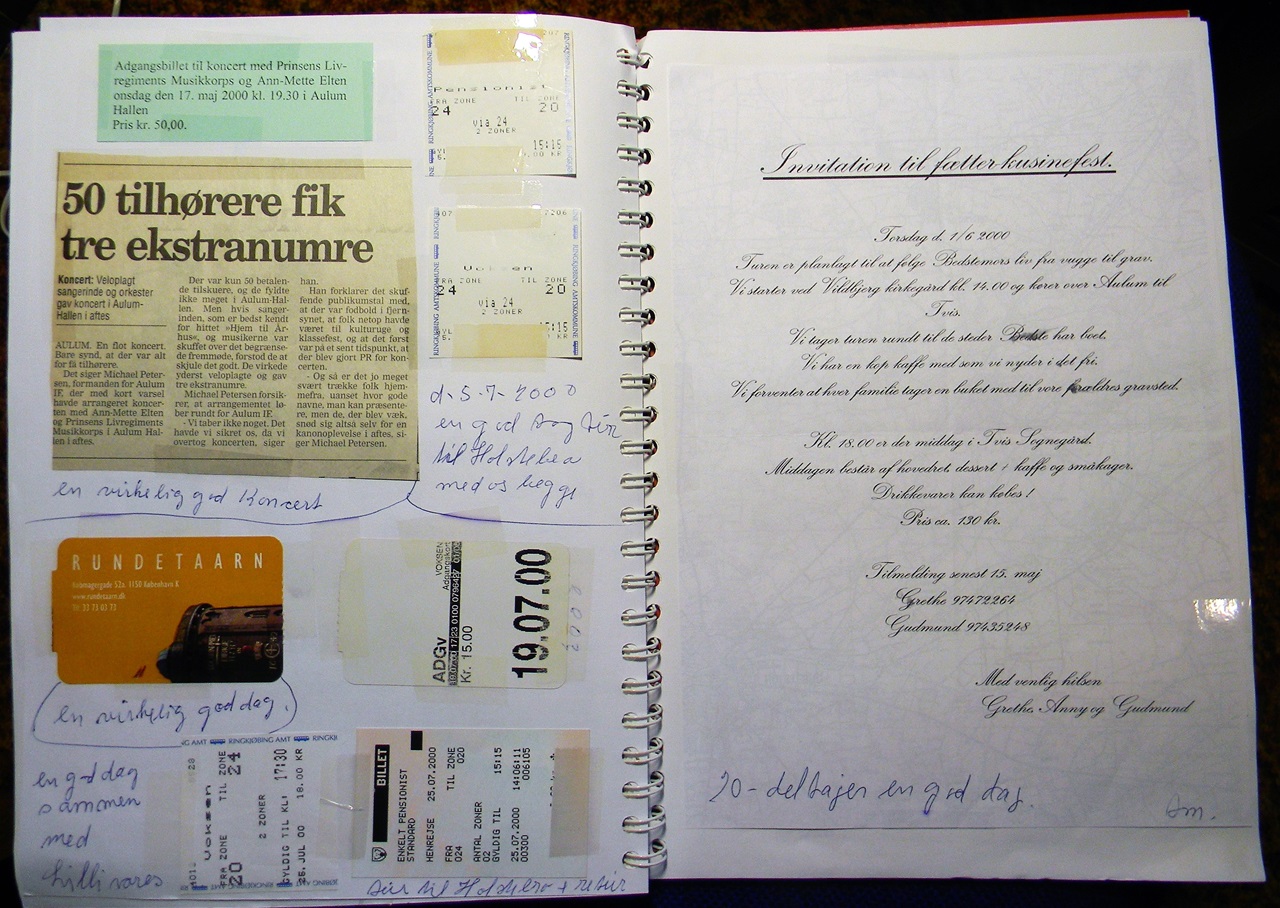 Adgangsbillet til koncert med Prinsens Liv-
regiments Musikkorps og Ann-Mette Elten
onsdag den 17. maj 2000 kl. 19.30 i Aulum
Hallen
Pris kr. 50,00.
50 tilhørere fik
tre ekstranumre
Koncert: Veloplagt
sangerinde og orkester
gav koncert i Aulum-
Hallen i aftes
AULUM. En flot koncert.
Bare synd, at der var alt
for få tilhørere.
Det siger Michael Peter-
sen, formanden for Aulum
IF, der med kort varsel
havde arrangeret koncer-
ten med Ann-Mette Elten
og Prinsens Livregiments
Musikkorps i Aulum Hal-
len i aftes.
Der var kun 50 betalen-
de tilskuere, og de fyldte
ikke meget i Aulum-Hal-
len. Men hvis sanger-
inden, som er bedst kendt
for hittet »Hjem til År-
hus«, og musikerne var
skuffet over det begrænse-
de fremmøde, forstod de at
skjule det godt. De virkede
yderst veloplagte og gav
tre ekstranumre.
Michael Petersen forsik-
rer, at arrangementet lø-
ber rundt for Aulum IF.
- Vi taber ikke noget. Det
havde vi sikret os, da vi
overtog koncerten, siger
han.
Han forklarer det skuf-
fende publikumstal med,
at der var fodbold i fjern-
synet, at folk netop havde
været til kulturuge og
klassefest, og at det først
var på et sent tidspunkt, at
der blev gjort PR for kon-
certen.
- Og så er det jo meget
svært trække folk hjem-
mefra, uanset hvor gode
navne, man kan præsente-
re, men de, der blev væk,
snød sig altså selv for en
kanonoplevelse i aftes, si-
ger Michael Petersen.
en virkelig god Koncert
Pensionist
FRA ZONE TIL ZONE
24 20
via 24
2 ZONER
15:15
RINGKJØBING AMTSKOMMUNE
Voksen
24 20
via 24
2 ZONER
15:15
RINGKJØBING AMTSKOMMUNE
d. 5-7-2000
en god Dag Tur
til Holstebro
med os begge
RUNDETAARN
Købmagergade 52a. 1150 København K
www.rundetaarn.dk
Tlf 33 73 03 73
VOKSEN
Adgangskort
ADGv
Kr. 15.00
19.07.00
en virkelig god dag.
en god dag
sammen
med
RINGKJØBING AMT
Voksen
FRA ZONE TIL ZONE
20 24
2 ZONER
GYLDIG TIL KL: 17:30
26. JUL 00 18.00 KR
BILLET
ENKELT PENSIONIST
STANDARD
HENREJSE 25.07.2000
FRA TIL ZONE
024 020
ANTAL ZONER
02
GYLDIG TIL 15:15
25.07.2000 14:06:11
00300 006105
tur til Holstebro + retur
Invitation til fætter kusinefest.
Torsdag d. 1/6 2000
Turen er planlagt til at følge Bedstemors liv fra vugge til grav.
Vi starter ved Vildbjerg kirkegård kl. 14.00 og kører over Aulum til
Tvis.
Vi tager turen rundt til de steder Bedste har boet.
Vi har en kop kaffe med som vi nyder i det fri.
Vi forventer at hver familie tager en buket med til vore forældres gravsted.
Kl. 18.00 er der middag i Tvis Sognegård.
Middagen består af hovedret, dessert + kaffe og småkager.
Drikkevarer kan købes !
Pris ca. 130 kr.
Tilmelding senest 15. maj
Grethe 97472264
Gudmund 97435248
Med venlig hilsen
Grethe, Anny og Gudmund
20 - deltager en god dag.